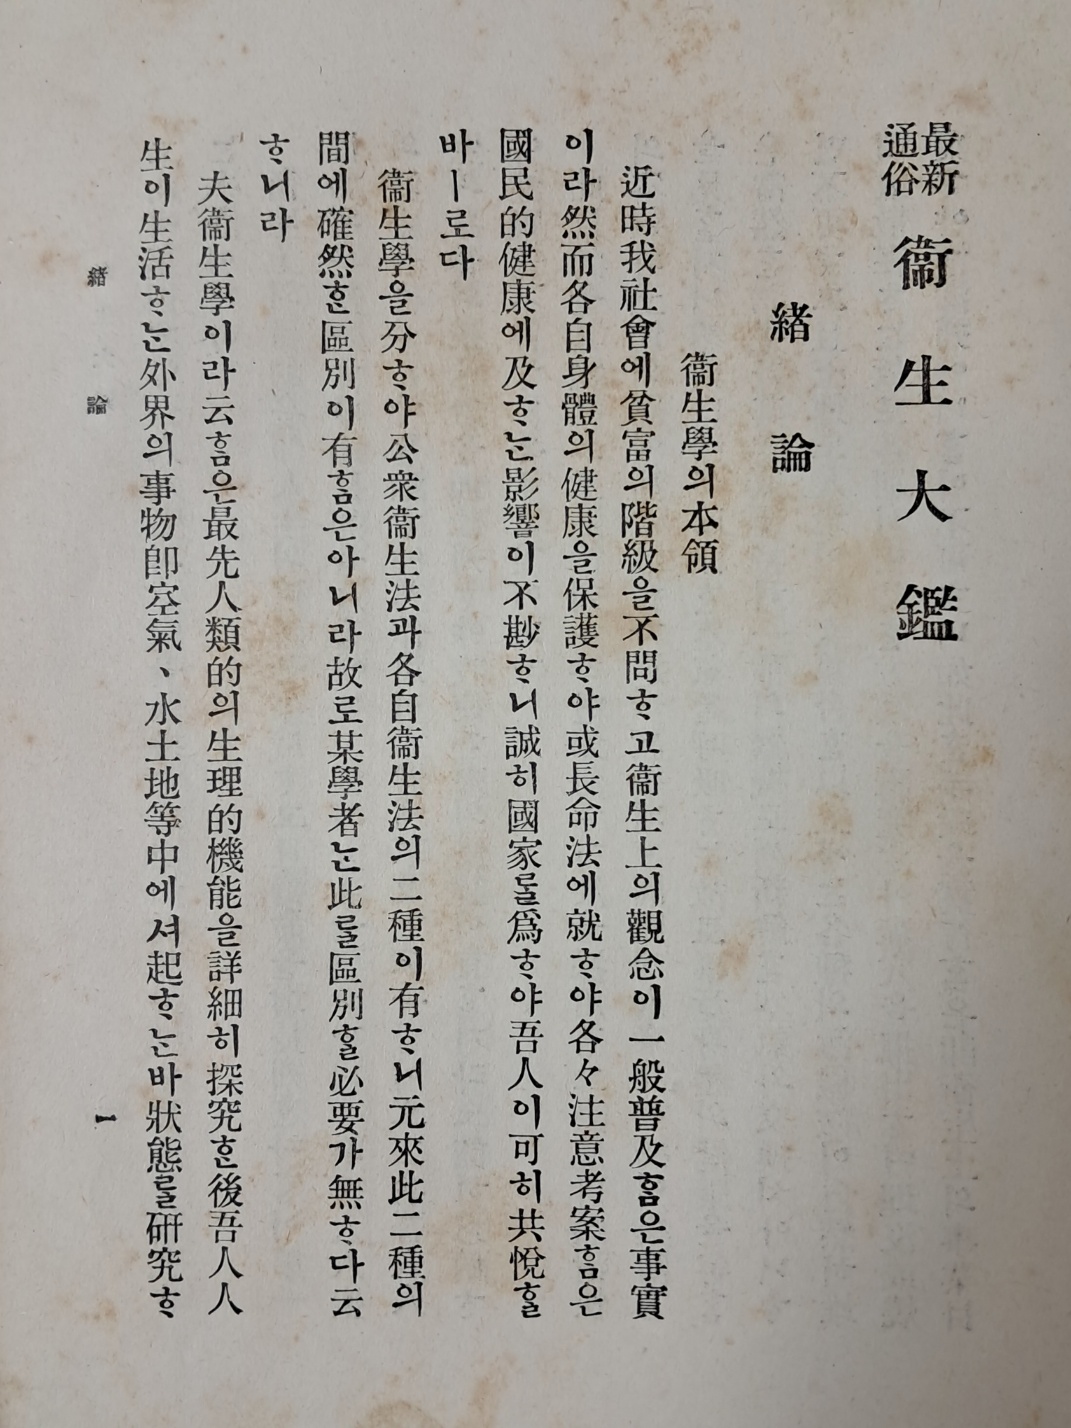 最新
通俗
衞生大鑑
緖論
衞生學의本領
近時我社會에貧富의階級을不問ᄒᆞ고衞生上의觀念이一般普及ᄒᆞᆷ은事實
이라然而各自身體의健康을保護ᄒᆞ야或長命法에就ᄒᆞ야各々注意考案ᄒᆞᆷ은
國民的健康에及ᄒᆞᄂᆞᆫ影響이不尠ᄒᆞ니誠히國家ᄅᆞᆯ爲ᄒᆞ야吾人이可히共悅ᄒᆞᆯ
바ㅣ로다
衞生學을分ᄒᆞ야公衆衞生法과各自衞生法의二種이有ᄒᆞ니元來此二種의
間에確然ᄒᆞᆫ區別이有ᄒᆞᆷ은아니라故로某學者ᄂᆞᆫ此ᄅᆞᆯ區別ᄒᆞᆯ必要가無ᄒᆞ다云
ᄒᆞ니라
夫衞生學이라云ᄒᆞᆷ은最先人類的의生理的機能을詳細히探究ᄒᆞᆫ後吾人人
生이生活ᄒᆞᄂᆞᆫ外界의事物卽空氣、水土地等中에셔起ᄒᆞᄂᆞᆫ바狀態ᄅᆞᆯ硏究ᄒᆞ
緖論
一